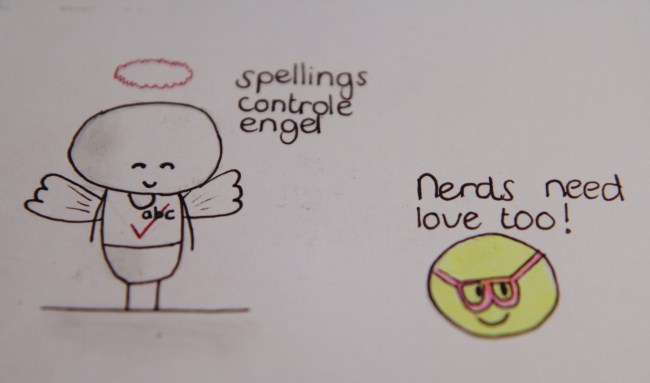 spellings
controle
engel
abc
Nerds need
love too!